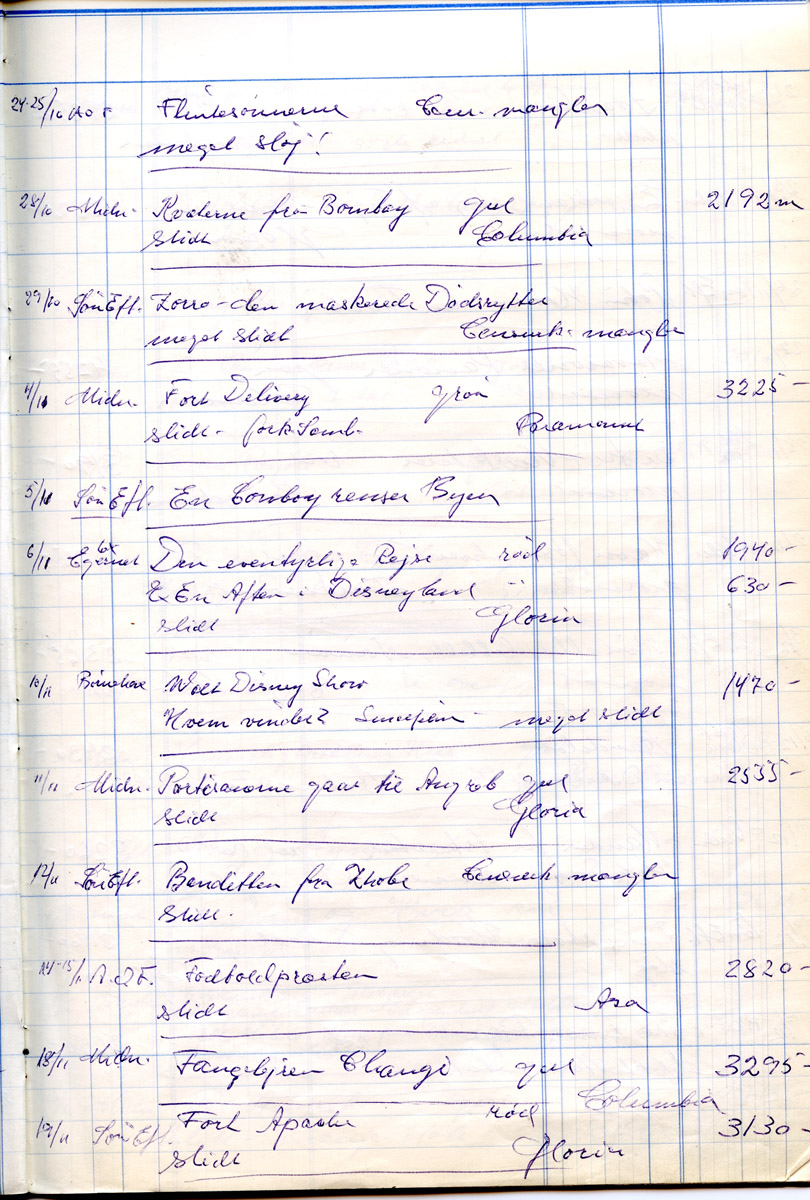 24-25/10 AOF Flintesønnerne Cens. mangler
meget sløj!
28/10 Midn. Roverne fra Bombay gul 2192 m
slidt Columbia
29/10 SønEft. Zorro - den maskerede Dødsrytter
meget slidt Censurk. mangler
4/11 Midn. Fort Delivery grøn 3225 -
slidt - Paramount
5/11 SønEft. En Cowboy renser Byen
6/11 Den eventyrlige Rejse rød 1940 -
& En Aften i Disneyland " 630 -
slidt Gloria
10/11 Walt Disney Show 1470 -
Hvem vinder? meget slidt
11/11 Midn. Partisanerne gaar til Angreb gul 2535 -
slidt Gloria
12/11 SønEft. Banditten fra Zhobe Censurk. mangler
slidt.
14-15/11 A.O.F. Fodboldpræsten 2820 -
slidt Asa
18/11 Midn. Fangelejren Changi gul 3295 -
Columbia
19/11 SønEft. Fort Apache rød 3130 -
slidt Gloria